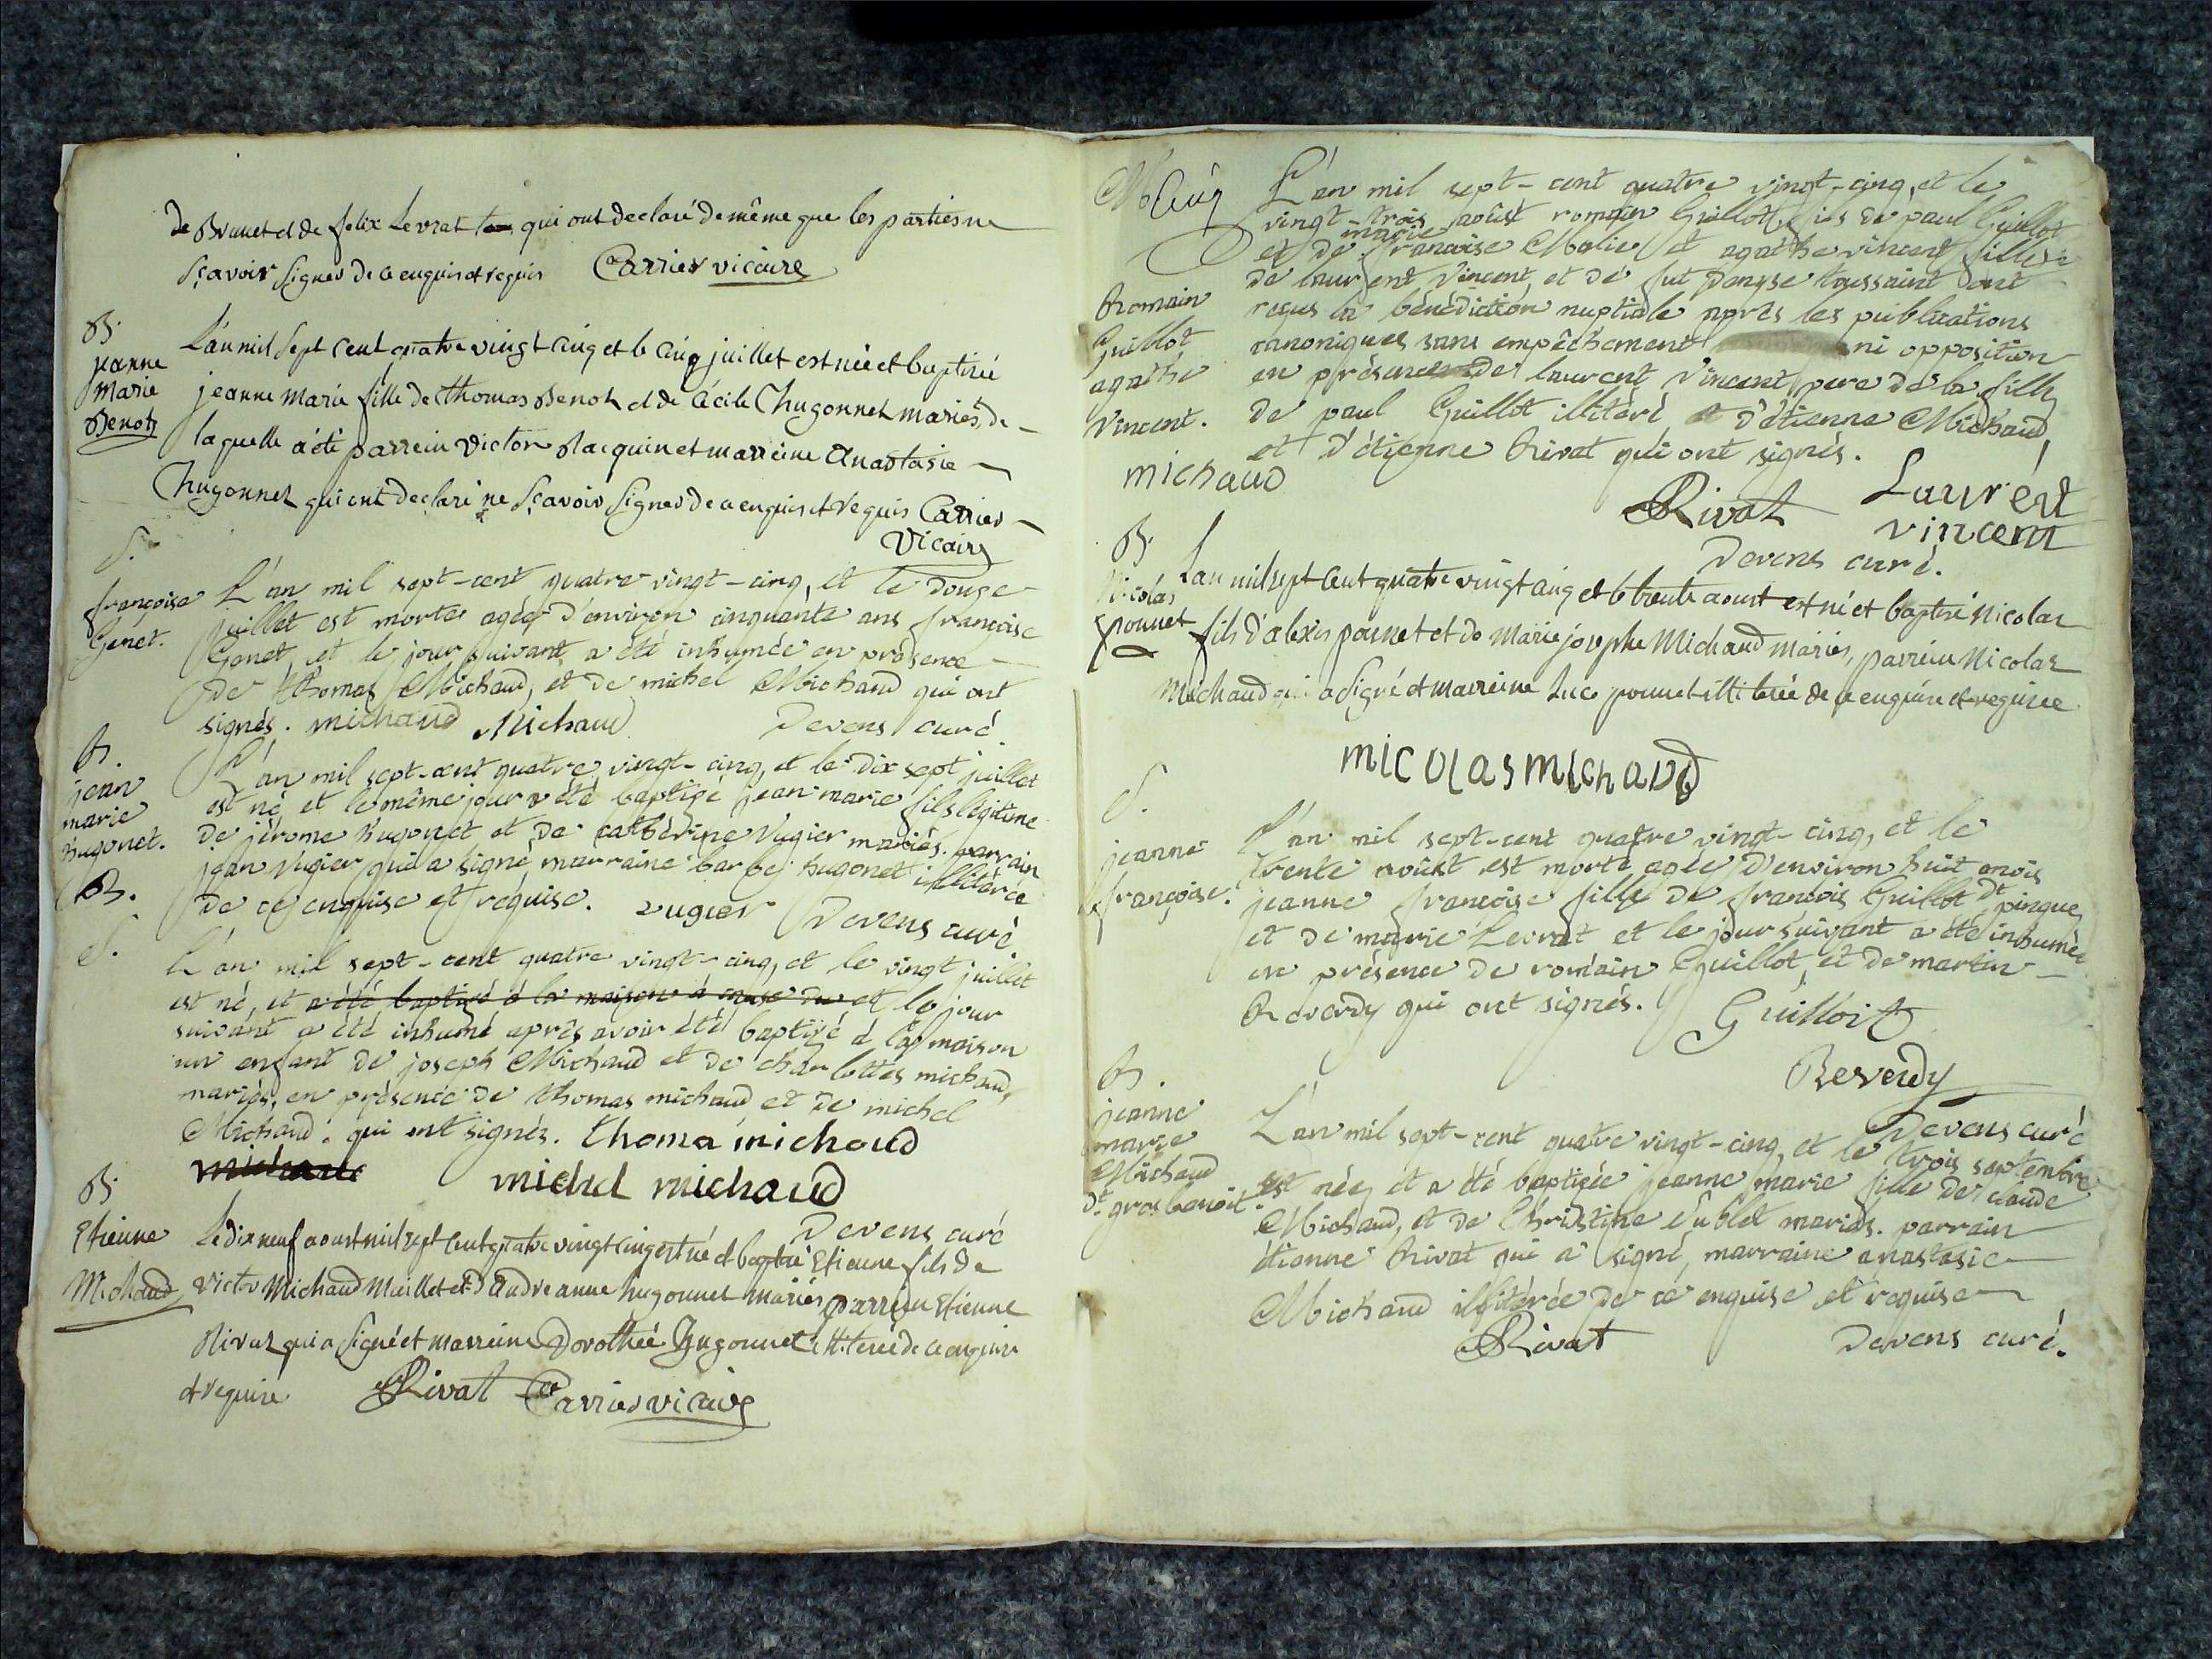 de Brunet et de felix Levrat qui ont declaré de même que les parties ne
sçavoir signer de ce enquis et requis Carrier vicaire
B.
jeanne
marie
Benoit
L'an mil sept cent quatre vingt cinq et le cinq juillet est née et baptisée
jeanne marie fille de thomas Benoit et de Cécile Chugonnet mariés, de
laquelle a été parrein victor Jacquin et marreine Anastasie
Chugonnet qui ont declaré ne sçavoir signer de ce enquis et requis Carrier
Vicaire
S.
françoise
Genet.
L'an mil sept-cent quatre vingt-cinq, et le douze
juillet est morte agée d'environ cinquante ans françoise
Genet, et le jour suivant a été inhumée en présence
de thomas Michaud, et de michel Michaud qui ont
signés. michaud Michaud Devens curé
B.
jean
marie
hugonet.
B.
L'an mil sept-cent quatre vingt-cinq, et le dix sept juillet
est né et le même jour a été baptisé jean marie fils légitime
de jérome hugonet et de cathérine Vugier mariés. parrain
jean Vugier qui a signé, marraine barbe hugonet illitérée
de ce enquise et requise. vugier Devens curé
S.
L'an mil sept-cent quatre vingt-cinq, et le vingt juillet
est né, et a été baptisé à la maison à cause du et le jour
suivant a été inhumé après avoir été baptisé à la maison
un enfant de joseph Michaud et de charlottes michaud,
mariés, en présence de thomas michaud et de michel
Michaud. qui ont signés. thoma michaud
michaud michel michaud
Devens curé
B.
Etienne
Michaud
Le dix neuf aoust mil sept cent quatre vingt cinq est né et baptisé Etienne fils de
victor Michaud Maillet et d'Andreanne hugonnet mariés parrein Etienne
Rivat qui a signé et marreine Dorothée hugonnet illiterée de ce enquise
et requise Rivat Carrier vicaire
M
Romain
Guillot
agathe
Vincent.
L'an mil sept-cent quatre vingt-cinq, et le
vingt-trois août romain Guillot, fils de paul Guillot
marie
et de françoise Matie et agathe vincent fille
de laurent Vincent, et de fut Denyse toussaint dont
reçus la bénédiction nuptiale après les publications
canoniques sans empêchement ni opposition
en présence de laurent Vincent, pere de la fille,
de paul Guillot illitéré, d'étienne Michaud,
et d'étienne Rivat qui ont signés.
michaud
Rivat Laurent
vincent
Devens curé.
B.
Nicolas
ponnet
L'an mil sept cent quatre vingt cinq et le trente aoust est né et baptisé Nicolas
fils d'alexis ponnet et de Marie josephe Michaud mariés, parrein Nicolas
Michaud qui a signé et marreine Luce ponnet illiterée de ce enquise et requise
nicolas michaud
S.
jeanne
françoise.
L'an mil sept-cent quatre vingt-cinq, et le
trente août est morte agée d'environ huit mois
jeanne françoise fille de françois Guillot dt pingue,
et de marie Levrat et le jour suivant a été inhumée
en présence de romain Guillot, et de martin
Reverdy qui ont signés. Guilloit
Reverdy
Devens curé
B.
jeanne
marie
Michaud
dt gros benoit.
L'an mil sept-cent quatre vingt-cinq, et le trois septembre
est née, et a été baptisée jeanne marie fille de claude
Michaud, et de Christine Sublet mariés. parrain
étienne Rivat qui a signé, marraine anastasie
Michaud illitérée de ce enquise et requise
Rivat Devens curé.